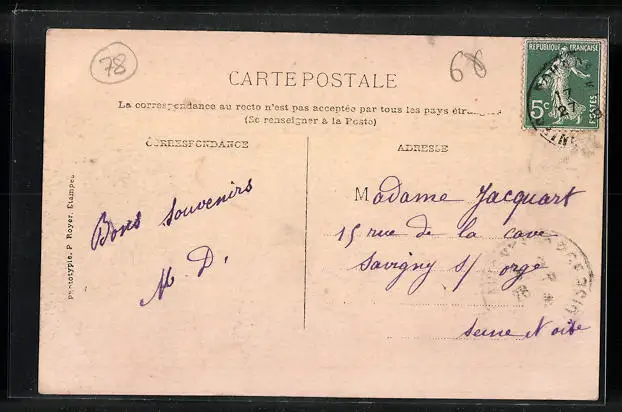 78
68
RÉPUBLIQUE FRANÇAISE
5c
POSTES
CARTE POSTALE
La correspondance au recto n'est pas acceptée par tous les pays étrangers
(Se renseigner à la Poste)
CORRESPONDANCE
ADRESSE
Bons souvenirs
M. D.
Madame Jacquart
15 rue de la cave
Savigny s/ orge
Seine et Oise
Phototypie. P. Royer, Etampes